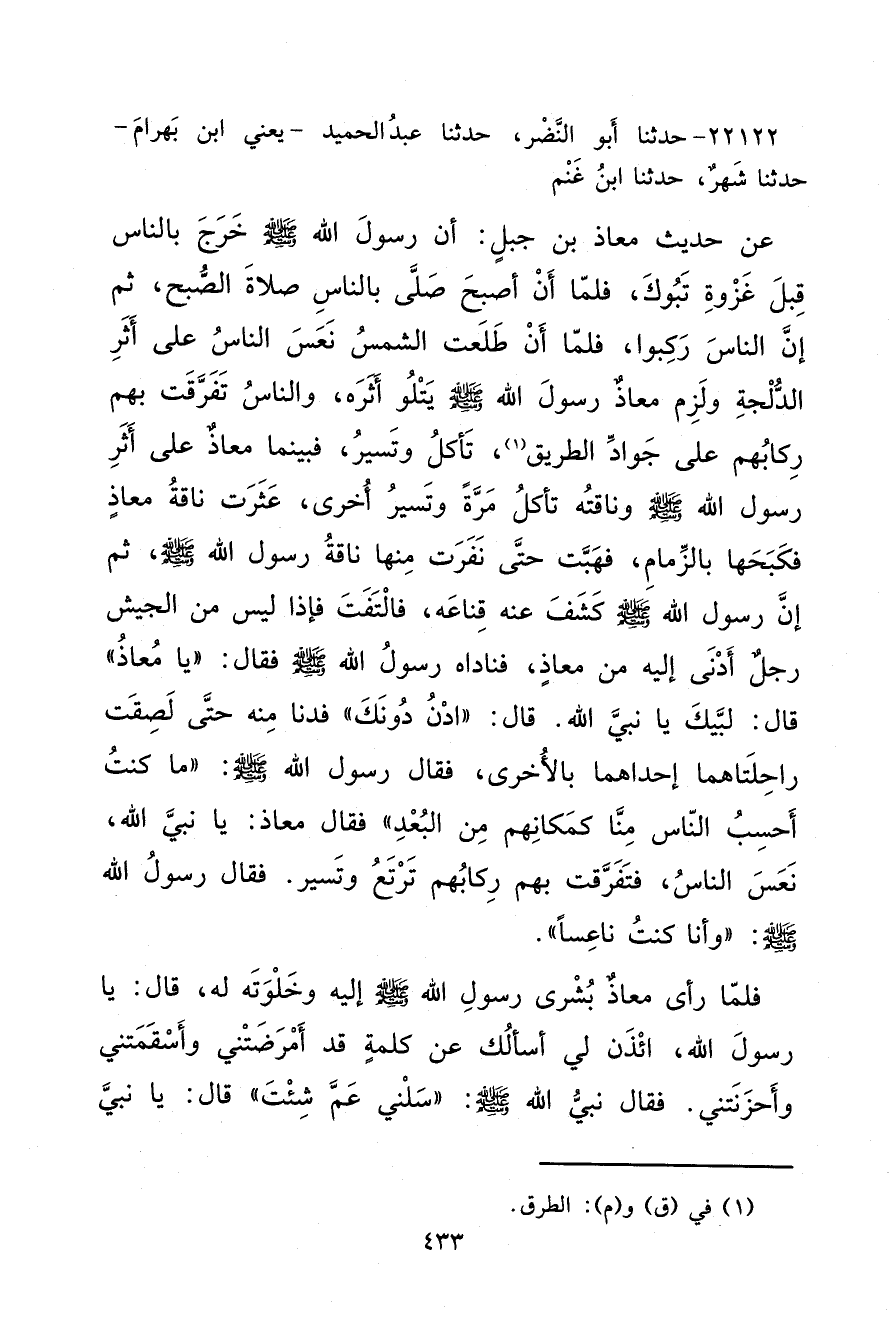 ٢٢١٢٢- حدثنا أَبو النَّضْر، حدثنا عبدُ الحميد -يعني ابن بَهرامَ-
حدثنا شَهرٌ، حدثنا ابنُ غَنْم
عن حديث معاذ بن جبلٍ: أن رسولَ الله ﷺ خَرَجَ بالناس
قِبلَ غَزْوةِ تَبُوكَ، فلمّا أَنْ أصبحَ صَلَّى بالناسِ صلاةَ الصُّبح، ثم
إنَّ الناسَ رَكِبوا، فلمّا أَنْ طَلَعت الشمسُ نَعَسَ الناسُ على أَثَرِ
الدُّلْجةِ ولَزِم معاذٌ رسولَ الله ﷺ يَتْلُو أَثَرَه، والناسُ تَفَرَّقَت بهم
رِكابُهم على جَوادِّ الطريق(١)، تَأكلُ وتَسيرُ، فبينما معاذٌ على أَثَرِ
رسول الله ﷺ وناقتُه تأكلُ مَرَّةً وتَسيرُ أُخرى، عَثَرَت ناقةُ معاذٍ
فكَبَحَها بالزِّمامِ، فهَبَّت حتَّى نَفَرَت مِنها ناقةُ رسول الله ﷺ، ثم
إنَّ رسول الله ﷺ كَشَفَ عنه قِناعَه، فالْتَفَتَ فإذا ليس من الجيش
رجلٌ أَدْنَى إليه من معاذٍ، فناداه رسولُ الله ﷺ فقال: «يا مُعاذُ»
قال: لبَّيكَ يا نبيَّ الله. قال: «ادْنُ دُونَكَ» فدنا مِنه حتَّى لَصِقَت
راحِلَتاهما إحداهما بالأُخرى، فقال رسول الله ﷺ: «ما كنتُ
أَحسِبُ النّاس مِنَّا كمَكانِهم مِن البُعْدِ» فقال معاذ: يا نبيَّ الله،
نَعَسَ الناسُ، فتَفَرَّقت بهم رِكابُهم تَرْتَعُ وتَسير. فقال رسولُ الله
ﷺ: «وأنا كنتُ ناعِساً».
فلمّا رأى معاذٌ بُشْرى رسولِ الله ﷺ إليه وخَلْوَتَه له، قال: يا
رسولَ الله، ائْذَن لي أسألُك عن كلمةٍ قد أَمْرَضَتْني وأَسْقَمَتني
وأَحزَنَتني. فقال نبيُّ الله ﷺ: «سَلْني عَمَّ شِئْتَ» قال: يا نبيَّ
(١) في (ق) و(م): الطرق.
٤٣٣